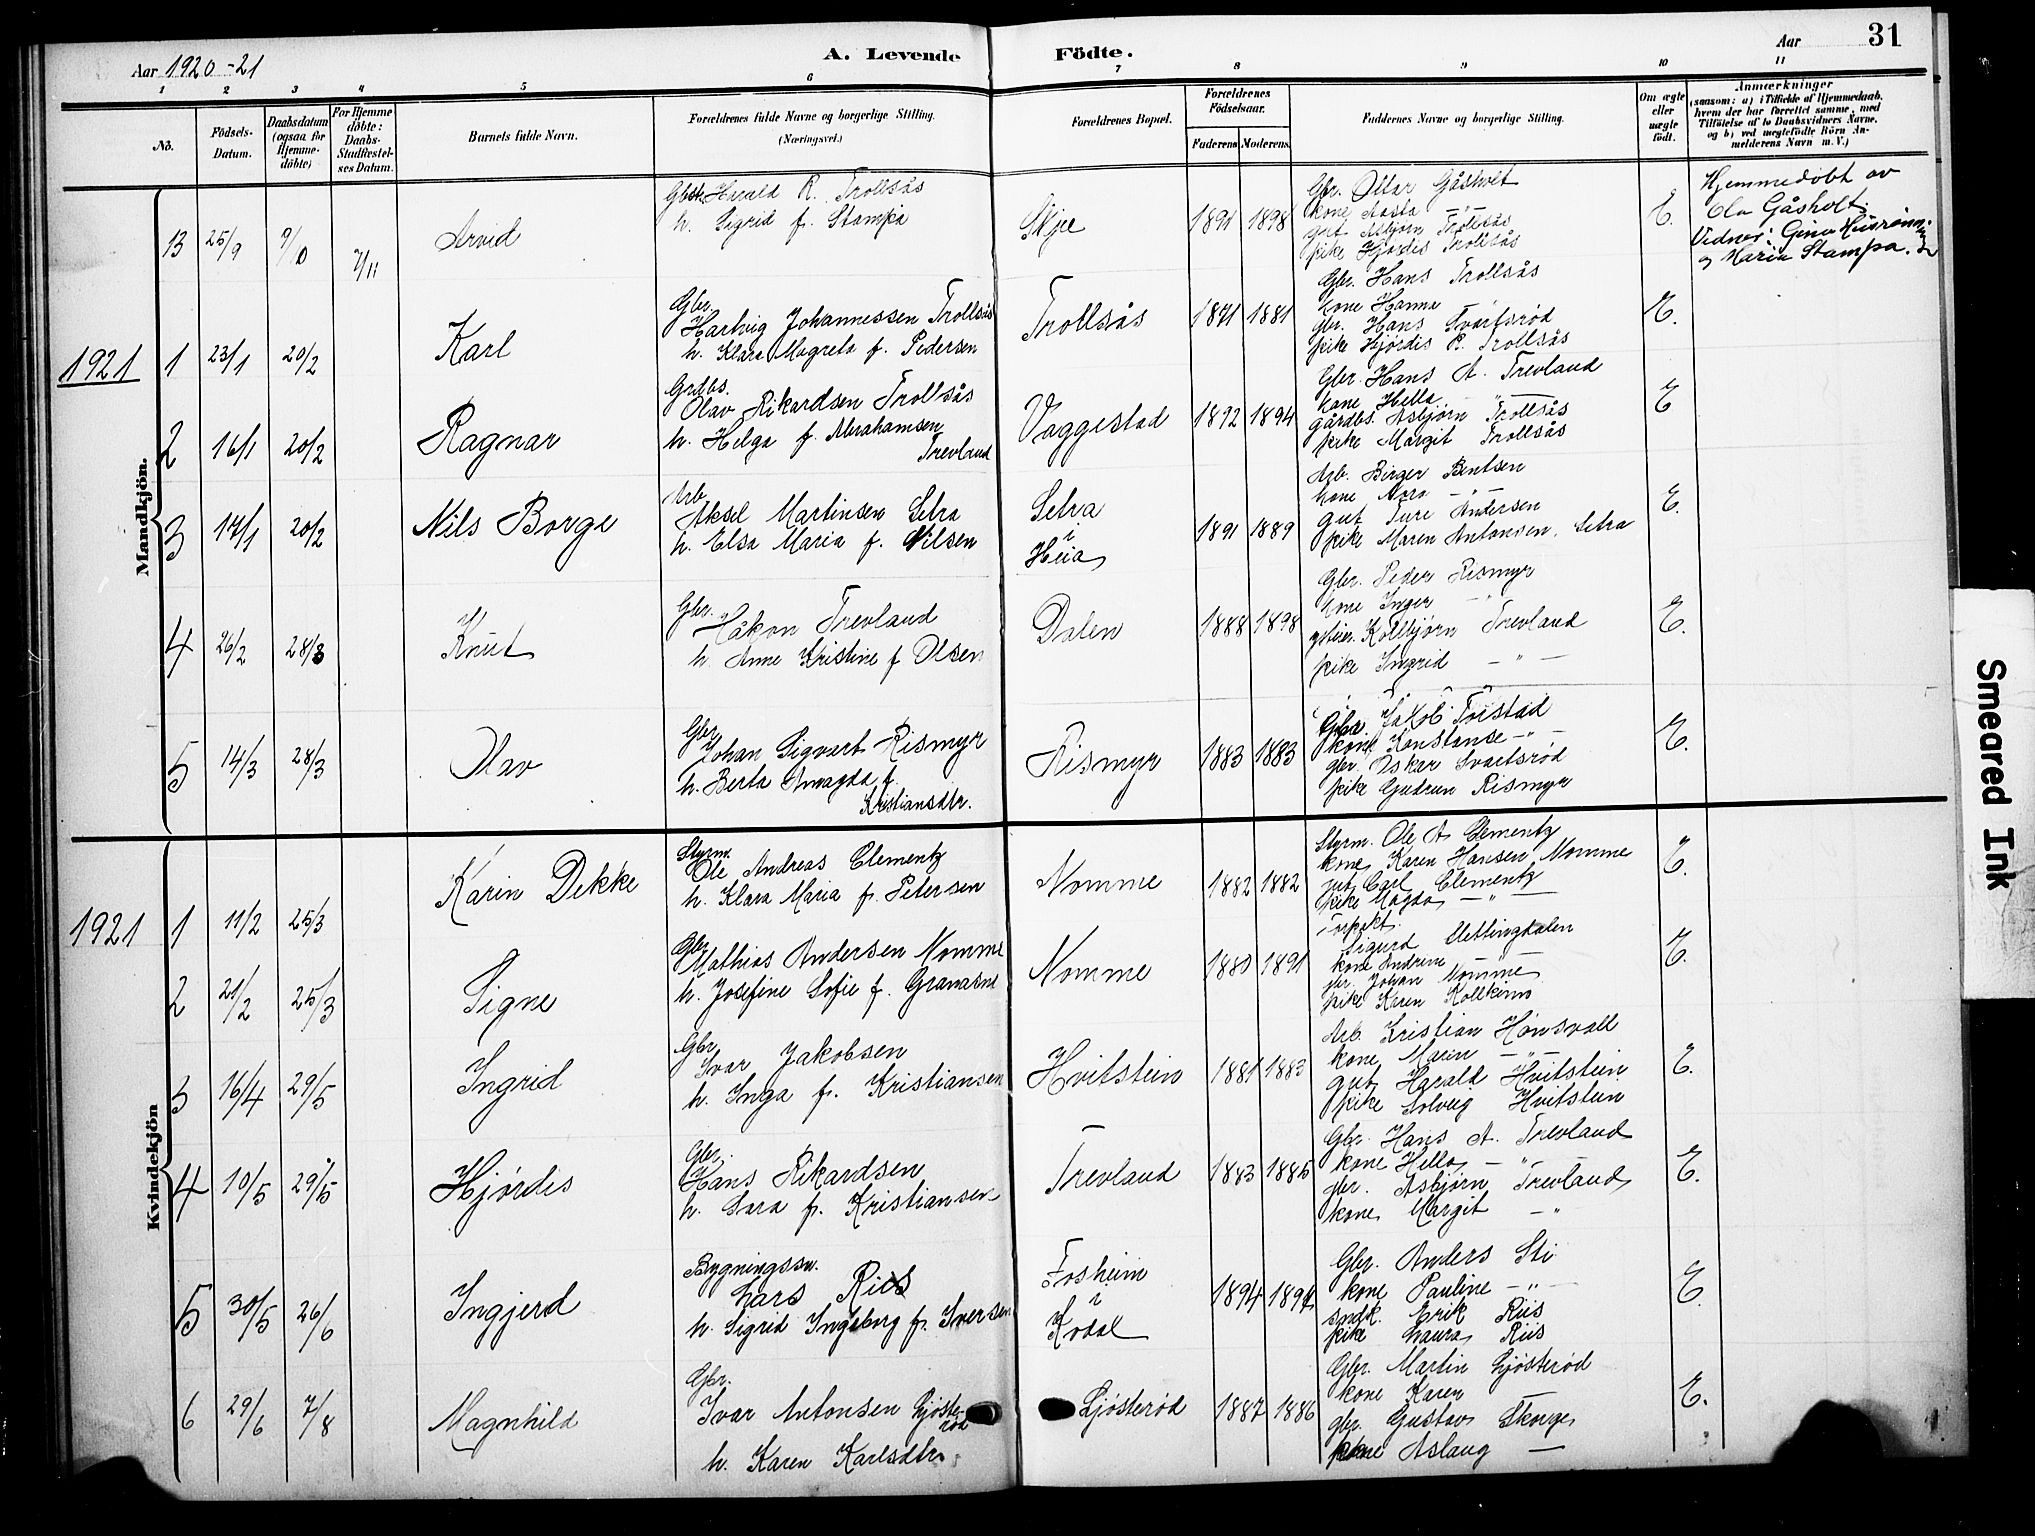 Aar 1920-21
A. Levende Födte.
Aar 31
1 2 3 4 5 6 7 8 9 10 11
No.
Födsels-Datum.
Daabsdatum (ogsaa for Hjemme-döbte)
For Hjemme döbte: Daabs-Stadfestel-ses Datum.
Barnets fulde Navn.
Forældrenes fulde Navne og borgerlige Stilling. (Næringsvei.)
Forældrenes Bopæl.
Forældrenes Födselsaar.
Faderens Moderens
Faddernes Navne og borgerlige Stilling.
Om ægte eller uægte födt.
Anmærkninger
(saasom: a) i Tilfælde af Hjemmedaab, hvem der har forrettet samme, med Tilföielse af to Daabsvidners Navne, og b) ved uægtefödte Börn An-melderens Navn m. V.)
Mandkjön.
13 25/9 9/10 7/11 Arvid
Harald R. Trollsås
h. Sigrid f. Stampa
Skjee 1891 1898
Gbr. Ollar Gåsholt
kone Aasta -"-
gut Asbjørn Trollsås
pike Hjørdis Trollsås
E.
Hjemmedøbt av
Ola Gåsholt.
Vidner: Gina
og Maria Stampa.
1921 1 23/1 20/2 Karl
Gbr.
Hartvig Johannessen Trollsås
h. Klara Magreta f. Pedersen
Trollsås 1891 1881
Gbr. Hans Trollsås
kone Hanna
gbr. Hans Svartsrød
pike Hjørdis R. Trollsås
E.
2 16/1 20/2 Ragnar
Grdbs.
Olav Rikardsen Trollsås
h. Helga f. Abrahamsen
Trevland
Vaggestad 1892 1894
Gbr. Hans A. Trevland
kone Hella -"-
gårdbs. Asbjørn Trollsås
pike Margit Trollsås
E
3 17/1 20/2 Nils Borge
Arb.
Aksel Martinsen Setra
h. Elsa Maria f. Nilsen
Setra
i
Heia
1891 1889
Arb. Birger Bentsen
kone Nora -"-
gut Ture Andersen
pike Maren Antonsen, Setra
E.
4 26/2 28/3 Knut
Gbr.
Håkon Trevland
h. Anne Kristine f Olsen
Dalen 1888 1898
Gbr. Peder Rismyr
kone Inger -"-
Kolbjørn Trevland
pike Ingrid -"-
E.
5 14/3 28/3 Olav
Gbr.
Johan Sigvart Rismyr
h. Berta Amagda f.
Kristiansdtr.
Rismyr 1883 1883
Gbr. Jakob Torstad
kone Konstanse -"-
gbr. Oskar Svartsrød
pike Gudrun Rismyr
E.
Kvindekjön
1921 1 11/2 25/3 Karin Dekke
Styrm.
Ole Andreas Clementz
h. Klara Maria f. Petersen
Nomme 1882 1882
Styrm. Ole A Clementz
kone Karen Hansen Nomme
gut Carl Clementz
pike Magda -"-
E.
2 21/2 25/3 Signe
Gbr.
Mathias Andersen Nomme
h. Josefine Sofie f. Granasne
Nomme 1880 1891
Forpakt.
Sigurd Mettingdalen
kone Andrine -"-
gbr. Johan Nomme
pike Karen Kolkinn
E.
3 16/4 29/5 Ingrid
Gbr.
Ivar Jakobsen
h. Inga f. Kristiansen
Hvitstein 1881 1883
Arb. Kristian Hønsvall
kone Marin -"-
gut Harald Hvitstein
pike Solveig Hvitstein
E.
4 10/5 29/5 Hjørdis
Gbr.
Hans Rikardsen
h. Sara f. Kristiansen
Trevland 1883 1885
Gbr. Hans A. Trevland
kone Hella -"-
gbr. Asbjørn Trevland
kone Margit -"-
E.
5 30/5 26/6 Ingjerd
Bygningssn.
Lars Riis
h. Sigrid Ingeborg f. Iversen
Fosheim
i
Kodal
1894 1894
Gbr. Anders Sti
kone Pauline -"-
sndk. Erik Riis
pike Laura Riis
E.
6 29/6 7/8 Magnhild
Gbr.
Ivar Antonsen Gjøste-
rød
h. Karen Karlsdtr.
Gjøsterød 1887 1886
Gbr. Martin Gjøsterød
kone Karen —
gbr. Gustav Skorge
kone Aslaug —
E.
Smeared Ink